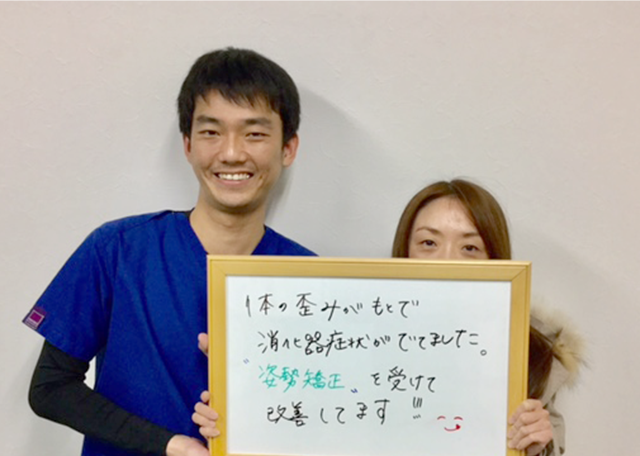 体の歪みがもとで
消化器症状がでてました。
"姿勢矯正"を受けて
改善してます!!!